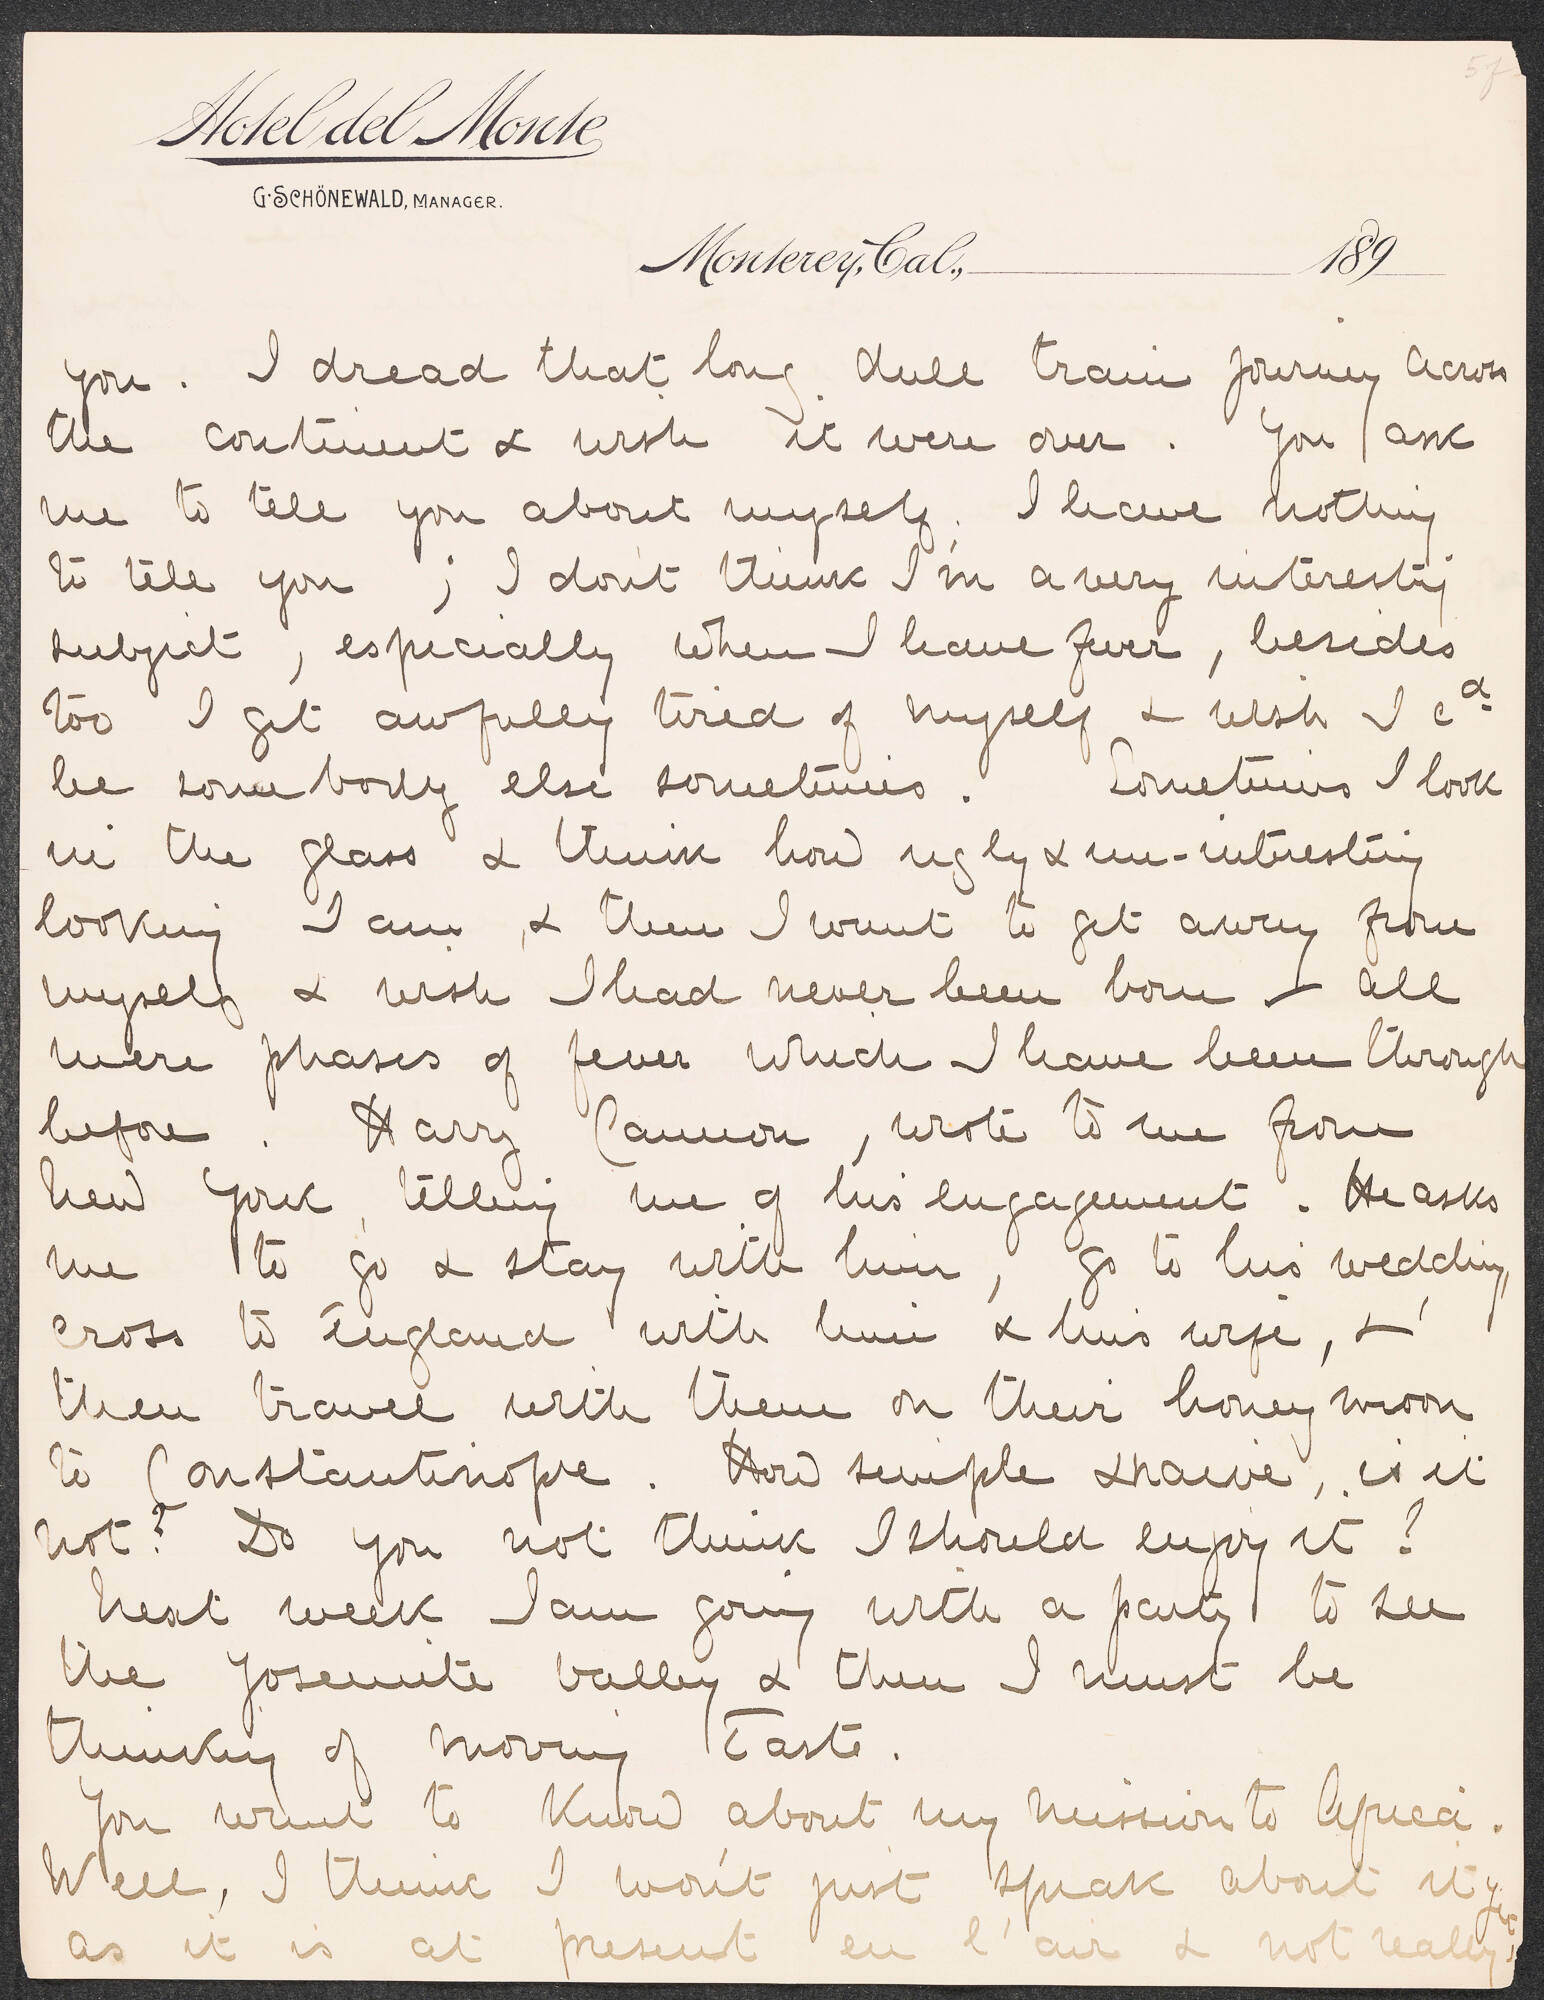 57
Hotel del Monte
G. SCHÖNEWALD, MANAGER.
Monterey, Cal., 189
you. I dread that long dull train journey across
the continent & wish it were over. You ask
me to tell you about myself. I have nothing
to tell you; I don't think I'm a very interesting
subject, especially when I have fever, besides
too I get awfully tired of myself & wish I cd
be somebody else sometimes. Sometimes I look
in the glass & think how ugly & un-interesting
looking I am, & then I want to get away from
myself & wish I had never been born — all
mere phases of fever which I have been through
before. Harry Cannon, wrote to me from
New York, telling me of his engagement. He asks
me to go & stay with him, go to his wedding,
cross to England with him & his wife, &
then travel with them on their honeymoon
to Constantinople. How simple & naive, is it
not? Do you not think I should enjoy it?
Next week I am going with a party to see
the Yosemite valley & then I must be
thinking of moving East.
You want to know about my mission to Africa.
Well, I think I won't just speak about it yet,
as it is at present en l'air & not really